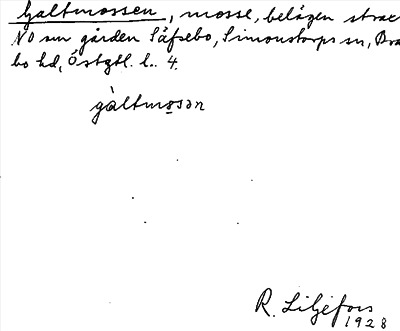 Galtmossen, mosse, belägen strax
NO om gården Säfsebo, Simonstorps sn, Bra
bo hd, Östgtl. l. 4.
gàltmo̲sən
R. Liljefors
1928